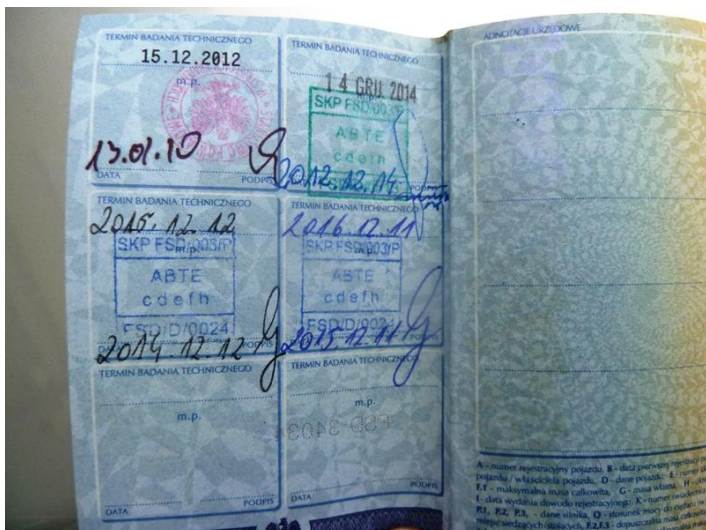 TERMIN BADANIA TECHNICZNEGO
15.12.2012
m.p.
13.01.10
DATA PODPIS
TERMIN BADANIA TECHNICZNEGO
14 GRU. 2014
SKP FSD/003/P
ABTE
cdefh
2012.12.14
PODPIS
TERMIN BADANIA TECHNICZNEGO
2015.12.12
SKP FSD/003/P
m.p.
ABTE
cdefh
FSD/D/0024
2014.12.12
PODPIS
TERMIN BADANIA TECHNICZNEGO
2016.12.11
SKP FSD/003/P
m.p.
ABTE
cdefh
FSD/D/0024
2015.12.11
PODPIS
TERMIN BADANIA TECHNICZNEGO
m.p.
DATA PODPIS
TERMIN BADANIA TECHNICZNEGO
m.p.
DATA PODPIS
ADNOTACJE URZĘDOWE
A - numer rejestracyjny pojazdu, B - data pierwszej rejestracji
pojazdu / właściciela pojazdu, D - dane pojazdu, E - numer
F.1 - maksymalna masa całkowita, G - masa własna, H -
I - data wydania dowodu rejestracyjnego, K - numer świadectwa
P.1, P.2, P.3, - dane silnika, Q - stosunek mocy do ciężaru
miejsc siedzących/stojących, F.2, F.3 - dopuszczalna masa całkowita